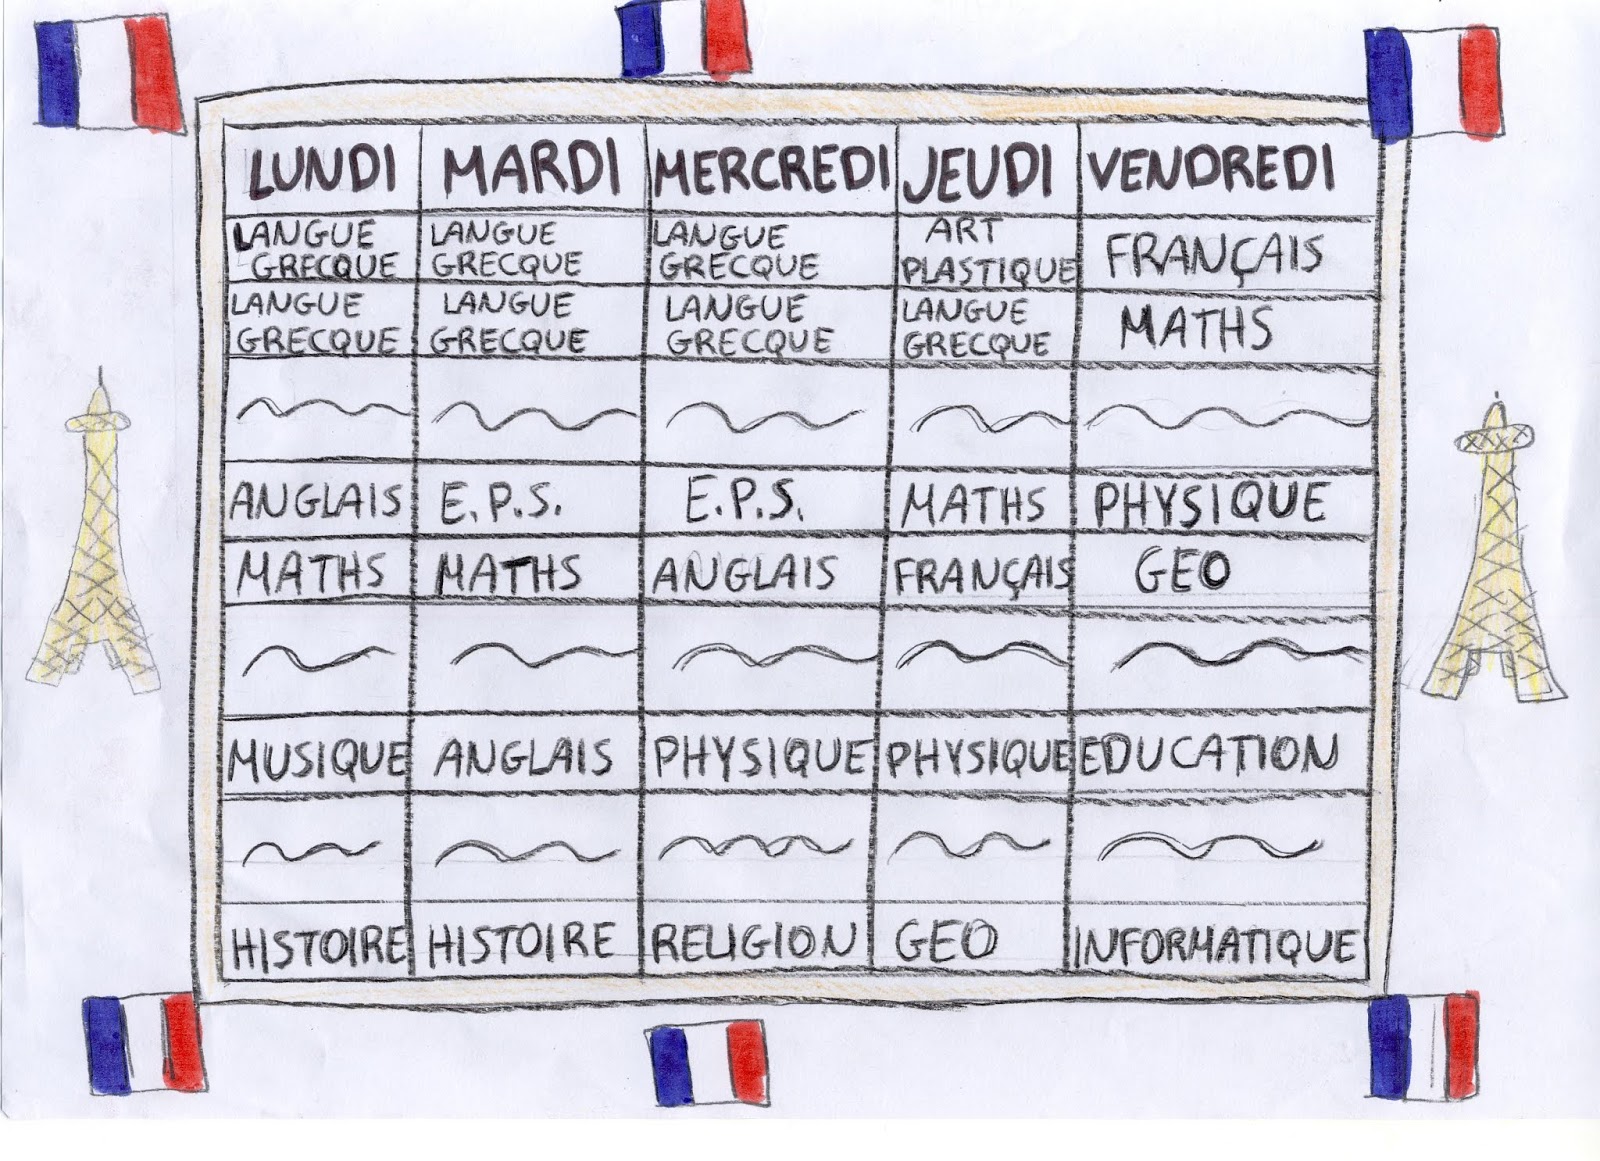 LUNDI MARDI MERCREDI JEUDI VENDREDI
LANGUE GRECQUE LANGUE GRECQUE LANGUE GRECQUE ART PLASTIQUE FRANÇAIS
LANGUE GRECQUE LANGUE GRECQUE LANGUE GRECQUE LANGUE GRECQUE MATHS
ANGLAIS E.P.S. E.P.S. MATHS PHYSIQUE
MATHS MATHS ANGLAIS FRANÇAIS GEO
MUSIQUE ANGLAIS PHYSIQUE PHYSIQUE EDUCATION
HISTOIRE HISTOIRE RELIGION GEO INFORMATIQUE